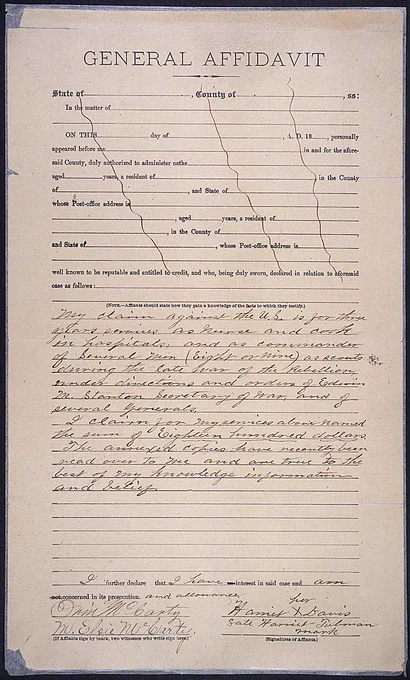 GENERAL AFFIDAVIT
State of , County of , ss:
In the matter of
ON THIS day of , A. D. 18 , personally
appeared before me in and for the afore-
said County, duly authorized to administer oaths
aged years, a resident of in the County
of , and State of
whose Post-office address is
, aged years, a resident of
, in the County of
and State of , whose Post-office address is
well known to be reputable and entitled to credit, and who, being duly sworn, declared in relation to aforesaid
case as follows:
(NOTE.—Affiants should state how they gain a knowledge of the facts to which they testify.)
My claim against the U.S. is for three
years services as nurse and cook
in hospitals, and as commander
of Several men (eight or nine) as scouts
during the late War of the Rebellion,
under directions and orders of Edwin
M. Stanton Secretary of War, and of
several Generals.
I claim for my services above named
the sum of Eighteen hundred dollars.
The annexed copies have recently been
read over to me and are true to the
best of my knowledge information
and belief.
I further declare that I have interest in said case and am
not concerned in its prosecution. and allowance
her
Harriet X Davis
late Harriet Tubman
mark
McCarty
W. Elsie McCarty
(If Affiants sign by mark, two witnesses who write sign here.) (Signatures of Affiants.)